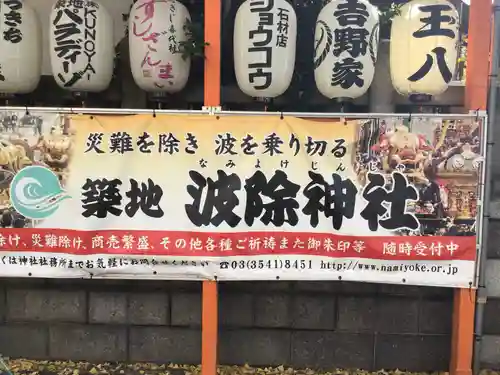 築地
KUNOYA
パクテーン
すしざんまい
石材店
ショウコウ
吉野家
王
八
災難を除き 波を乗り切る
なみよけじんじゃ
築地 波除神社
除け、災難除け、商売繁盛、その他各種ご祈祷また御朱印等 随時受付中
くは神社社務所までお気軽にお問合せ
☎03(3541)8451 http://www.namiyoke.or.jp